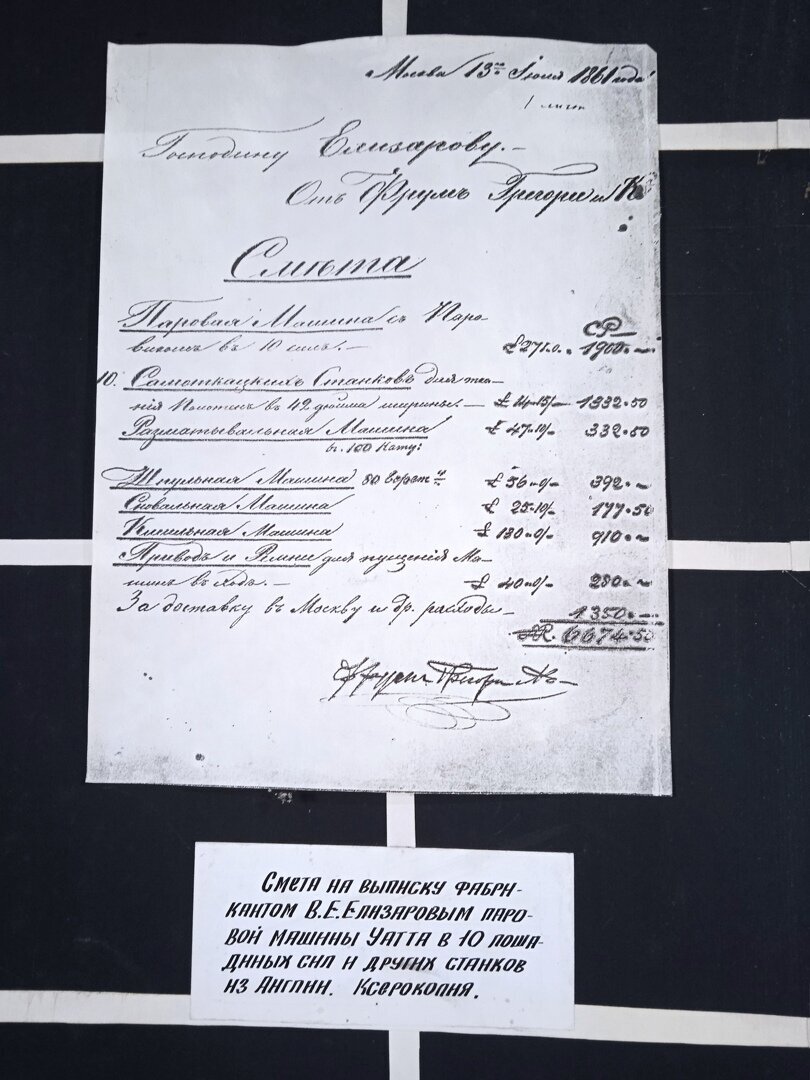 Москва 13го Июня 1861 года
Господину Елизарову.-
Отъ Фрумъ Грегори и Ко
Смѣта
Паровая Машина съ Паро-
СР
викомъ въ 10 силъ.- £ 271.0. 1900.-
10. Самоткацкихъ Станковъ для тка-
нія Полотенъ въ 42 дюйма ширины.- £ 14.15/- 1332.50
Разматывальная Машина £ 47.10/- 332.50
въ 100 Кату:
Шпульная Машина 80 Верет. £ 56.0/- 392.-
Сновальная Машина £ 25.10/- 177.50
Клеильная Машина £ 130.0/- 910.-
Приводъ и Ремни для пущенія Ма-
шинъ въ ходъ.- £ 40.0/- 280.-
За доставку въ Москву и др. расходы- 1350.-
СR. 6674.50
Смета на выписку фабри-
кантом В.Е.Елизаровым паро-
вой машины Уатта в 10 лоша-
диных сил и других станков
из Англии. Ксерокопия.